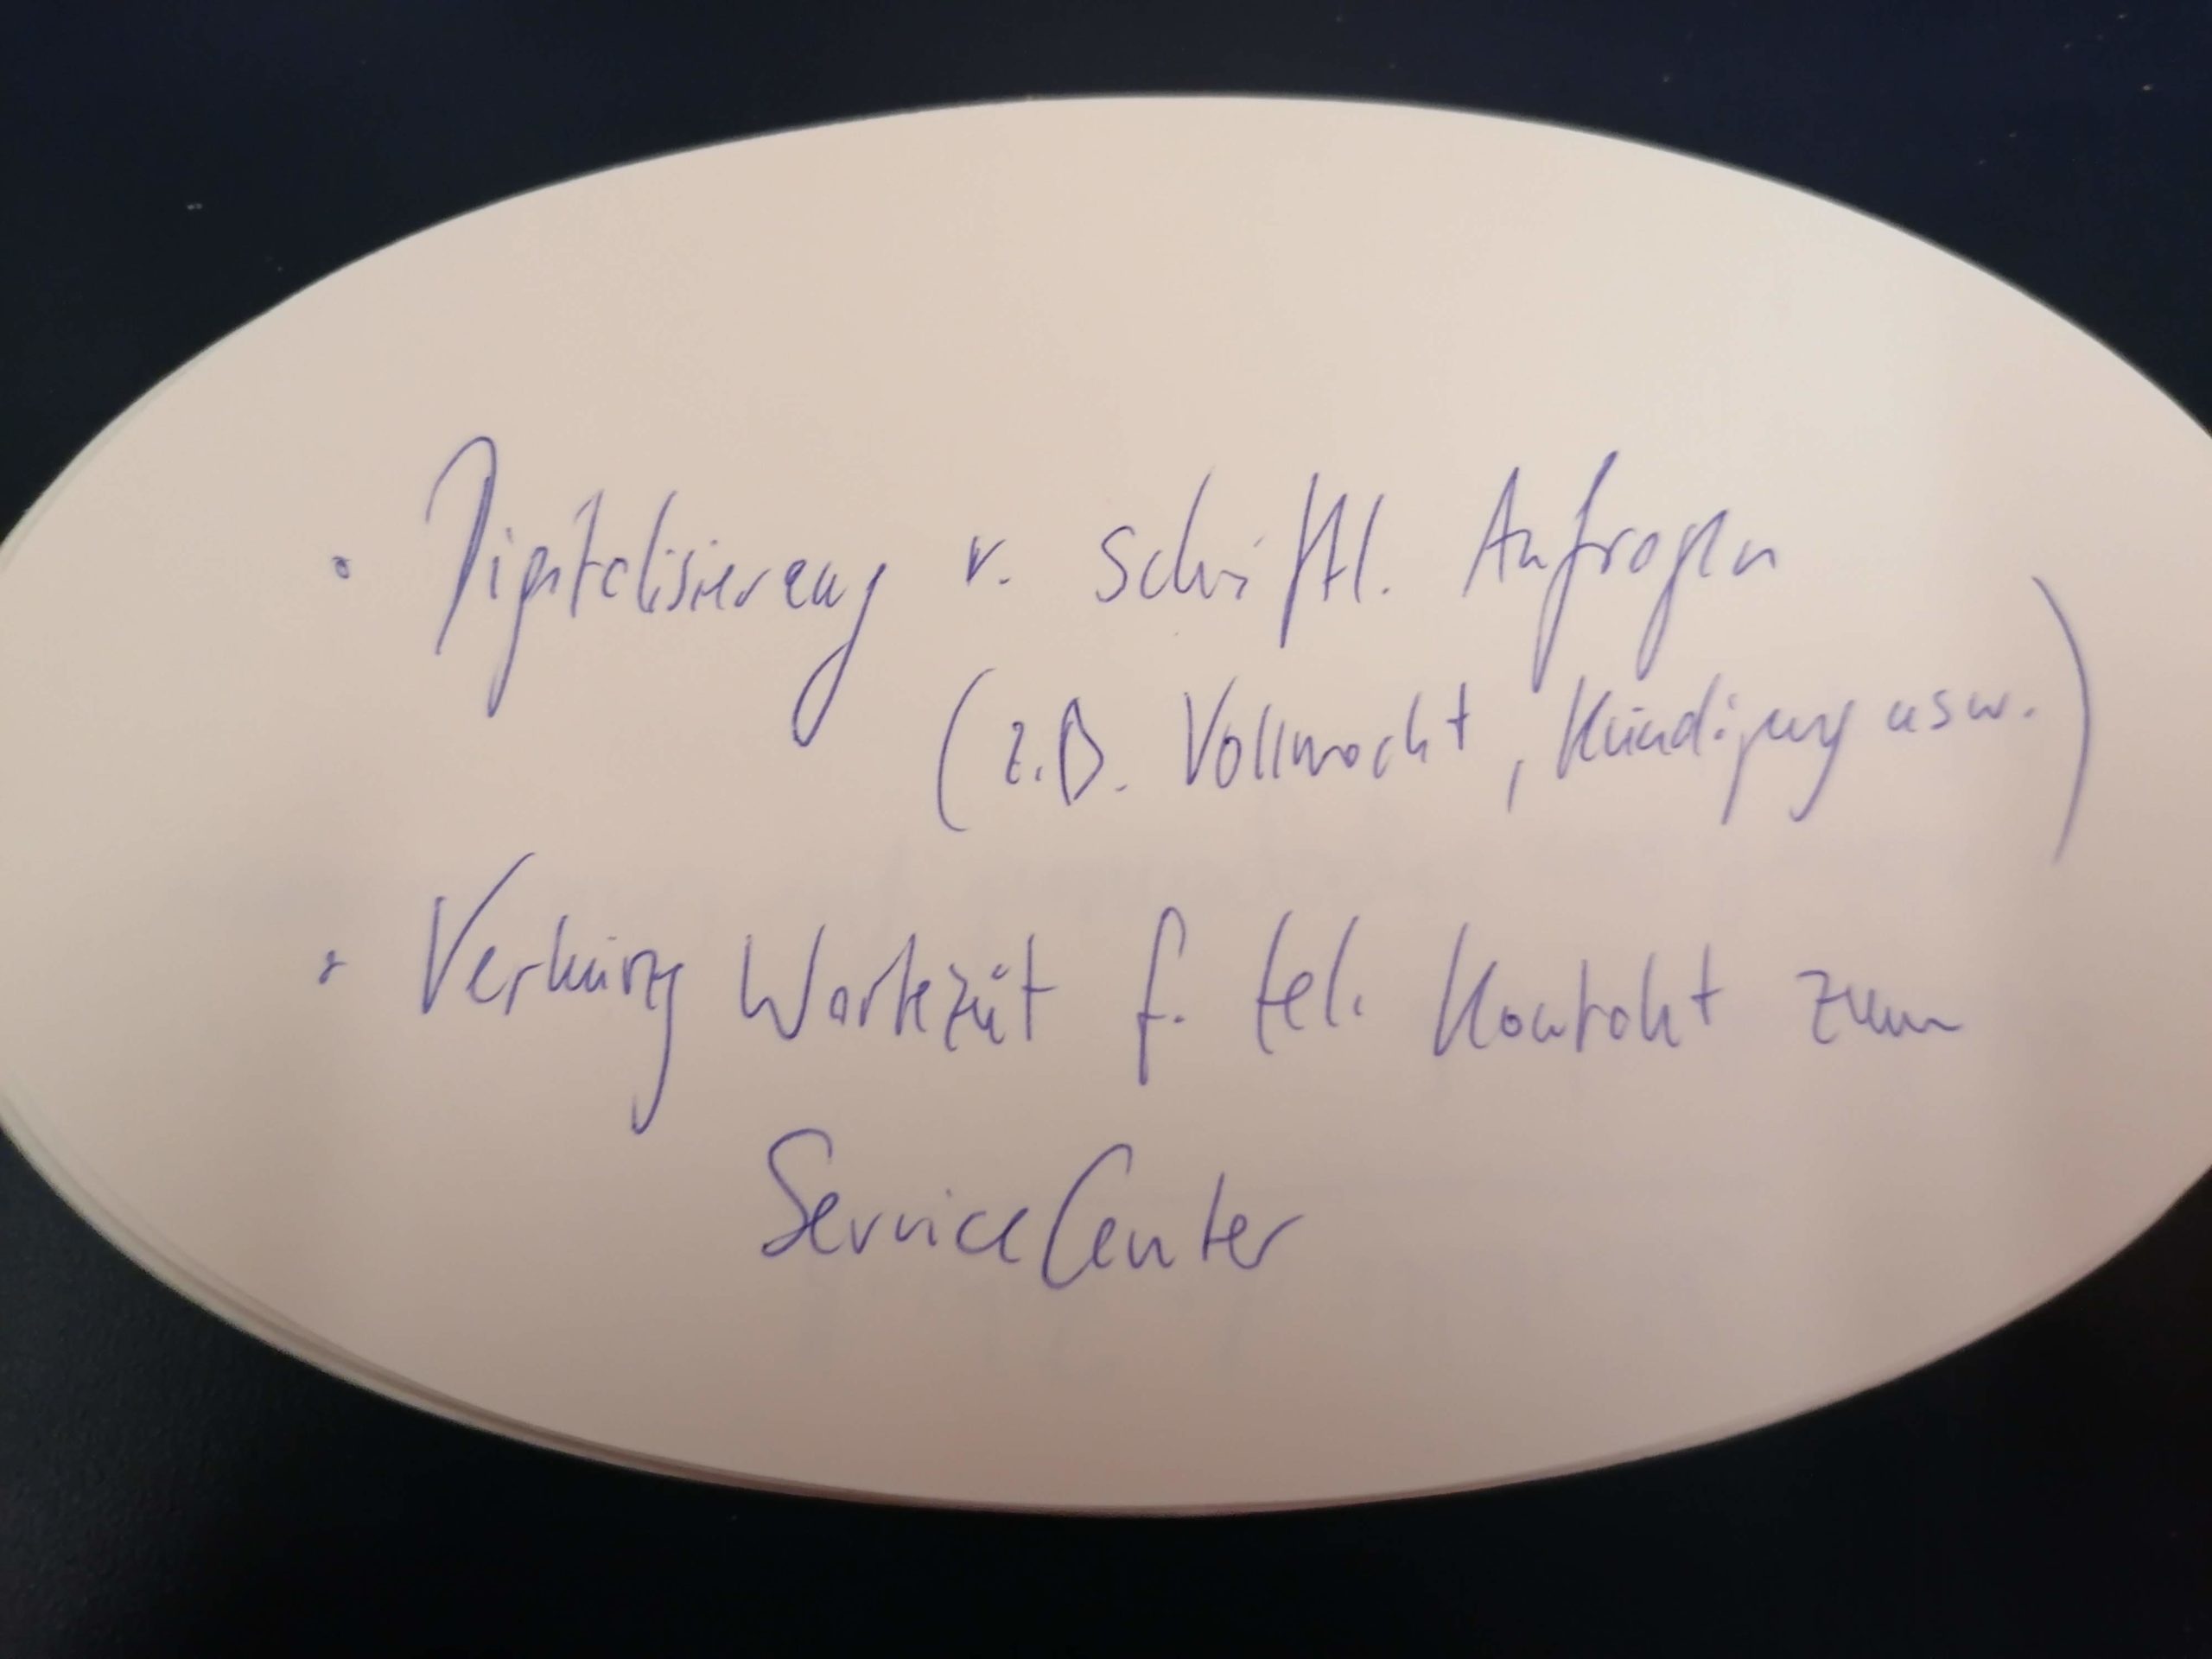 • Digitalisierung v. schriftl. Anfragen
(z.B. Vollmacht, Kündigung usw.)
• Verkürzg Wartezeit f. tel. Kontakt zum
ServiceCenter